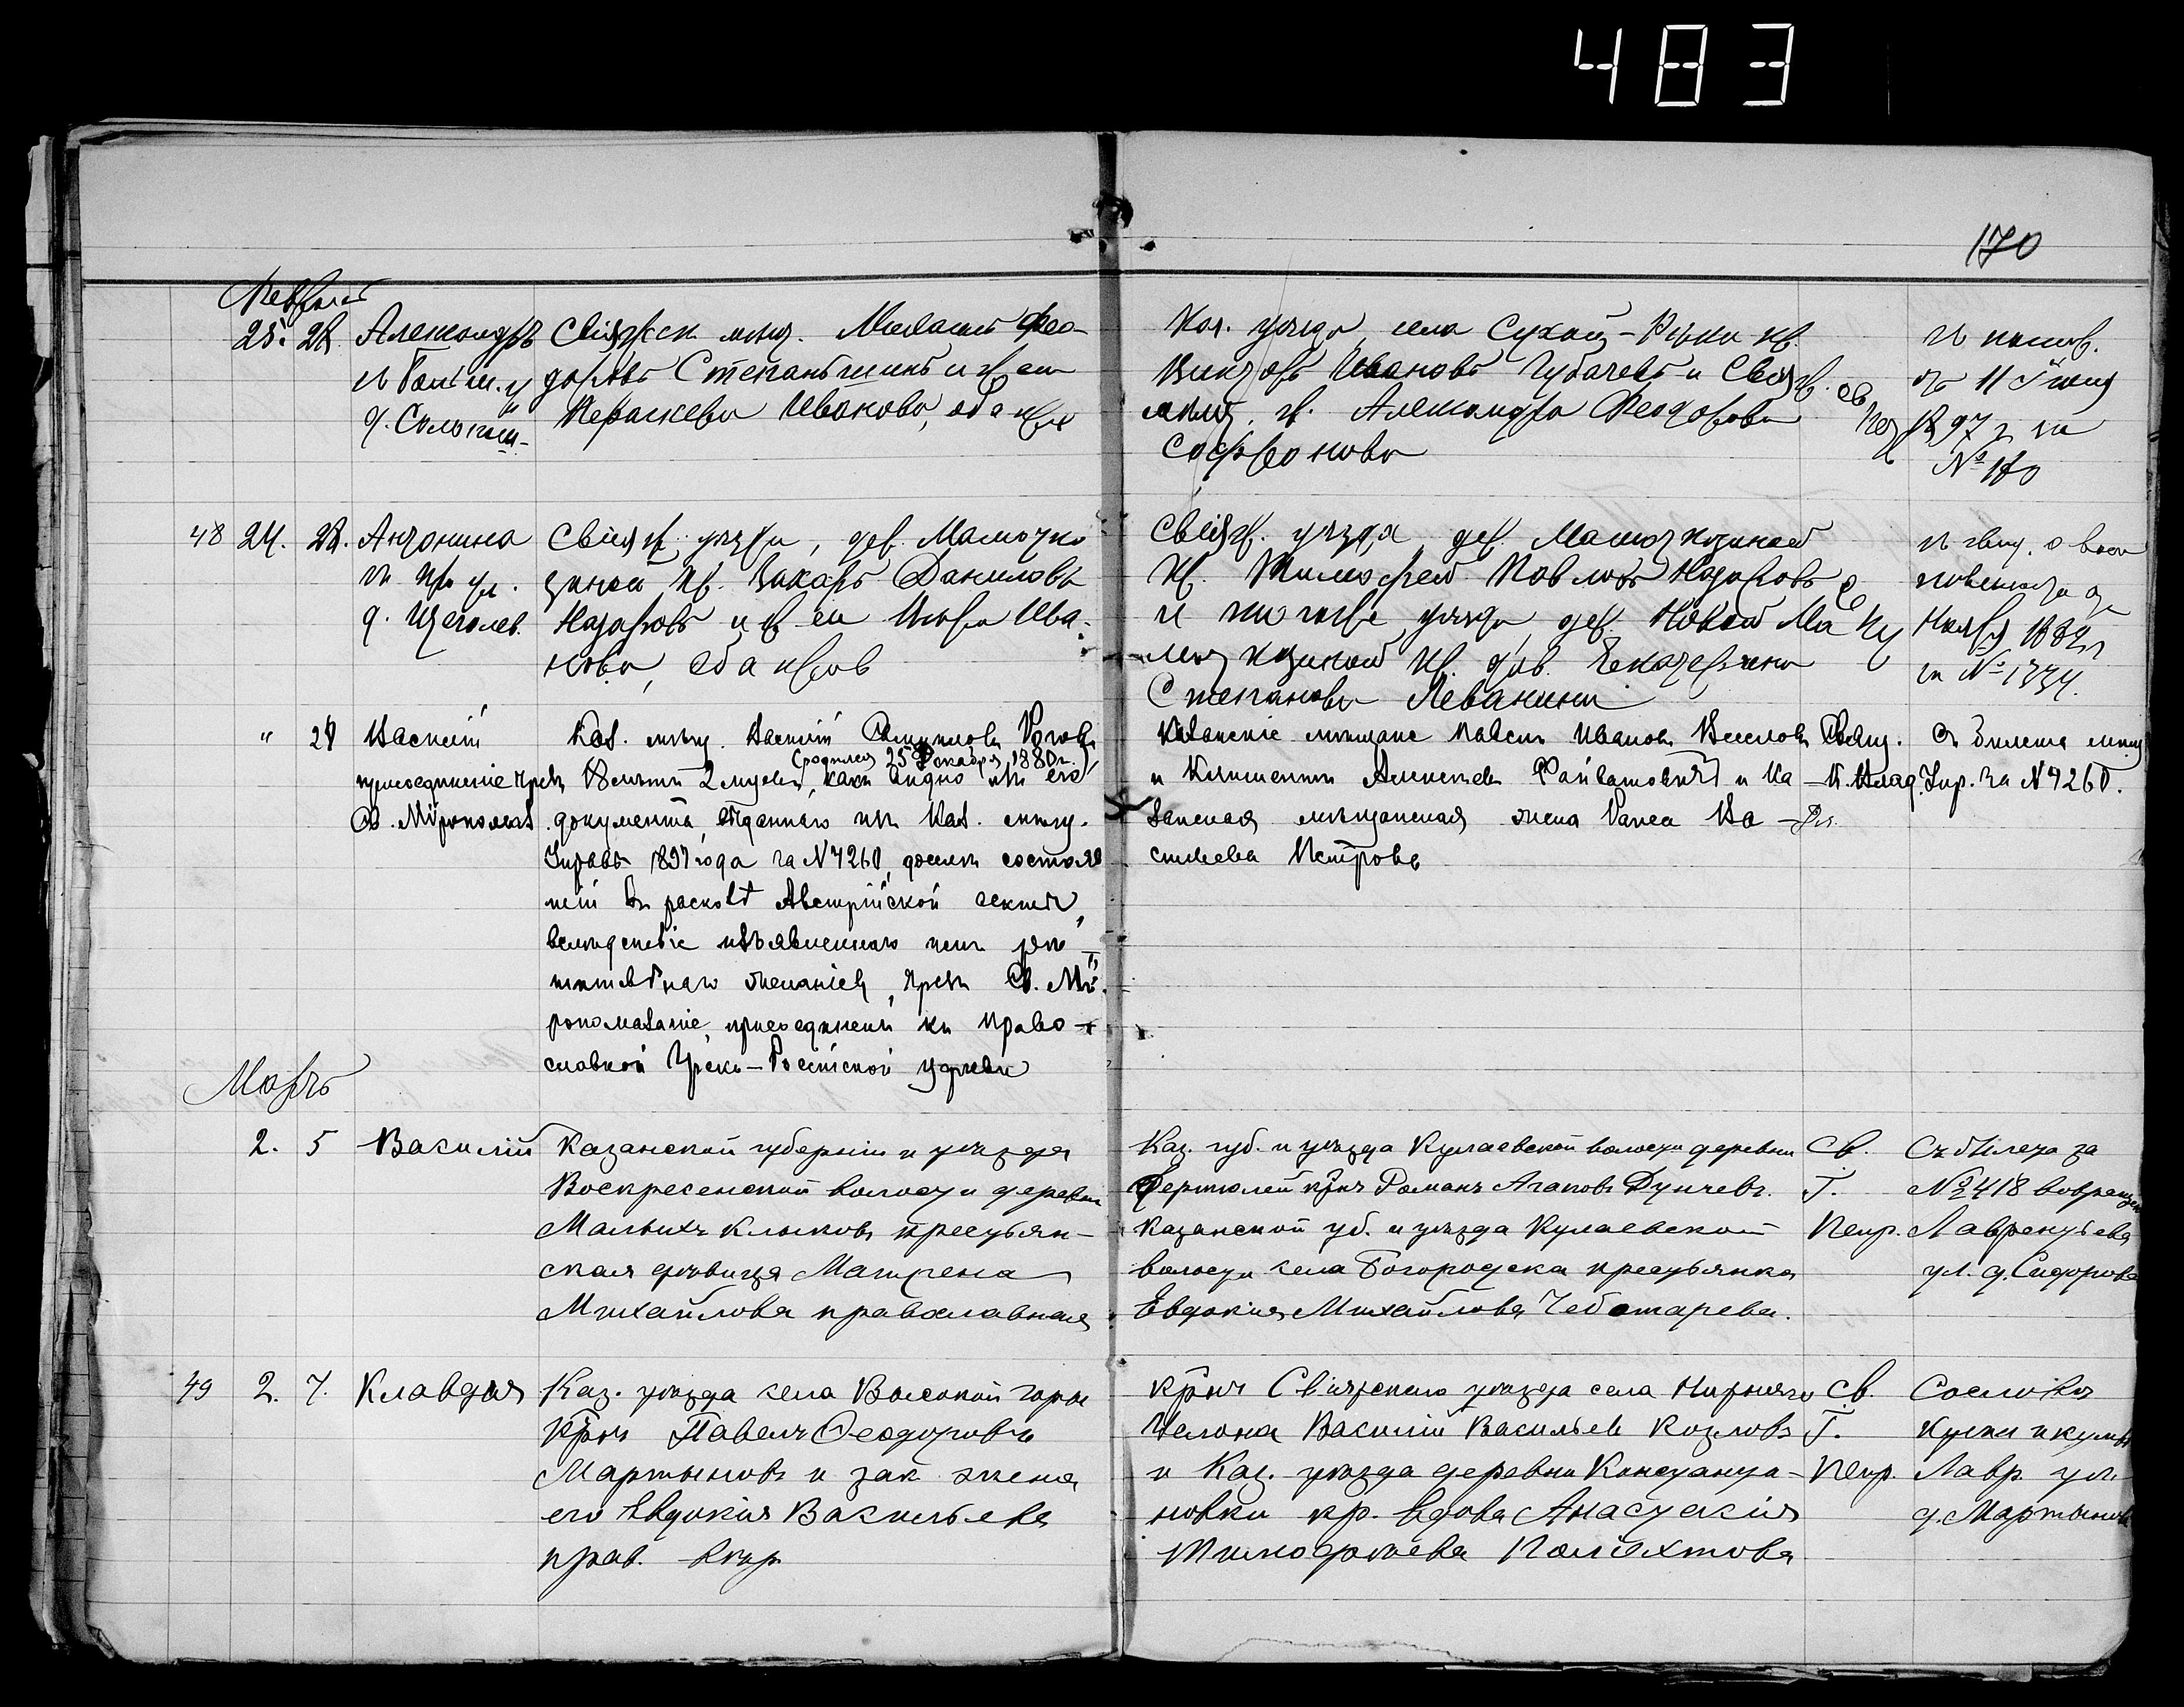 483
170
Февраль
25. 28. Александръ Свіяжск. мѣщ. Михаилъ Ѳео-
доровъ Степаньшинъ и ж. ея
Параскева Иванова, оба прав.
Каз. уѣзда, села Сухой-Рѣки кр.
Викторъ Ивановъ Губачевъ и Свіяж.
мѣщ. ж. Александра Ѳеодорова
Софронова
св.
отъ 11 Іюня
1897 г. за
№ 170
48 24. 28. Антонина
д. Щеголев.
Свіяж. уѣзда, дер. Маматко
зиной кр. Захаръ Даниловъ
Назаровъ и ж. ея Вѣра Ива-
нова, оба прав.
Свіяж. уѣзда, дер. Маматкозиной
кр. Тимофей Павловъ Назаровъ
и того же уѣзда, дер. Новой Ма
маткозиной кр. дѣв. Екатерина
Степанова Леванина
ноября 1882 г.
за № 1334.
" 28 Василій
присоединеніе чрезъ
Св. Мѵропомаз.
Каз. мѣщ. Василій Рогов
(родился 25 Декабря 1880 г.),
какъ видно изъ его
документа, выданнаго изъ Каз. мѣщ.
Управы 1897 года за № 4260, доселѣ состояв
шій въ расколѣ Австрійской секты,
вслѣдствіе изъявленнаго имъ рѣ-
шительнаго желанія, чрезъ Св. Мѵ-
ропомазаніе, присоединенъ къ Право-
славной Греко-Россійской церкви
Казанскіе мѣщане Павелъ Ивановъ Веселовъ
и Климентъ Алексѣевъ и Ка-
занская мѣщанская жена Раиса Ва-
сильева Петрова
Свящ.
Изъ билета мѣщ.
Упр. за № 4260.
Мартъ
2. 5 Василій
Казанской губерніи и уѣзда
Воскресенской волости деревни
Малыхъ Клыковъ крестьян-
ская дѣвица Матрена
Михайлова православная
Каз. губ. и уѣзда Кулаевской волости деревни
Дертюлей крнъ Романъ Агаповъ Дунчевъ.
Казанской губ. и уѣзда Кулаевской
волости села Богородска крестьянка
Евдокія Михайлова Чеботарева.
Св.
Г.
Петр.
Съ билета за
№ 2418
Лаврентьева
ул. д. Сидорова
49 2. 7. Клавдія
Каз. уѣзда села Высокой горы
крнъ Павелъ Ѳеодоровъ
Мартыновъ и зак. жена
его Евдокія Васильева
прав.
крнъ Свіяжскаго уѣзда села Нижняго
Услона Василій Васильевъ Козловъ
и Каз. уѣзда деревни Константи-
новки кр. вдова Анастасія
Тимофѣева Полѣхтова
Св.
Г.
Петр.
Со словъ
Лавр. ул.
д. Мартынова